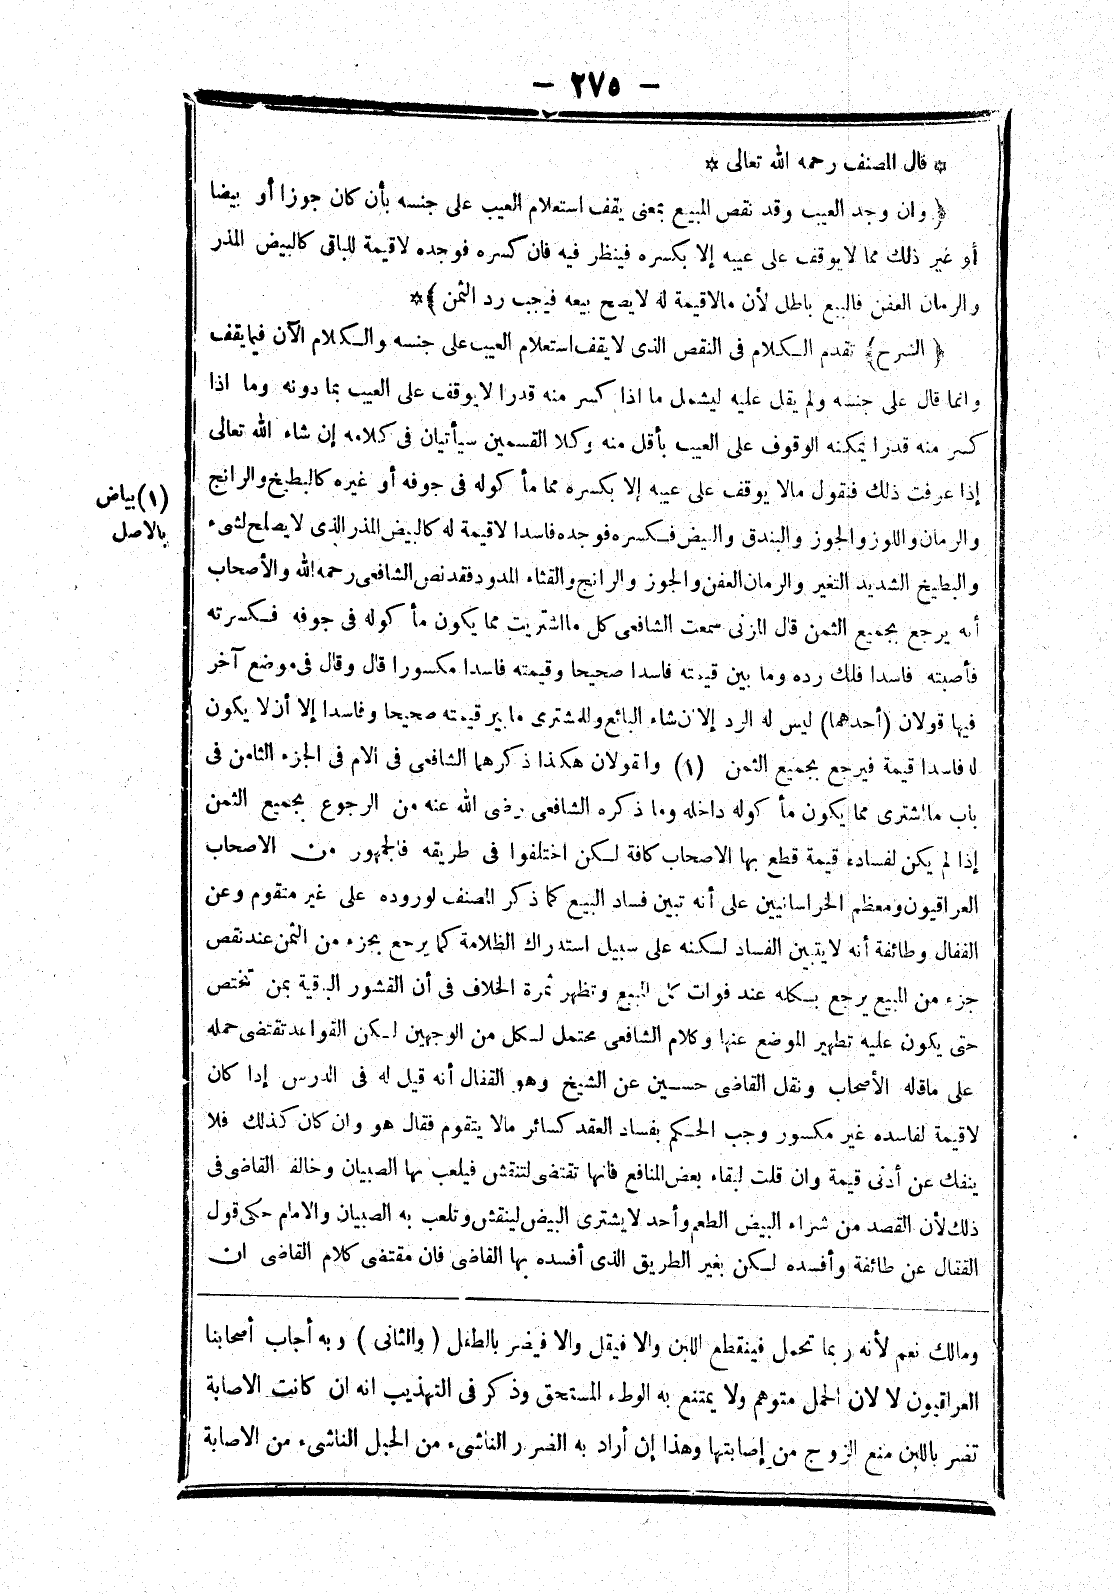 — ٢٧٥ —
* قال المصنف رحمه الله تعالى *
﴿ وان وجد العيب وقد نقص المبيع بمعنى يقف استعلام العيب على جنسه بأن كان جوزا أو بيضا
أو غير ذلك مما لا يوقف على عيبه إلا بكسره فينظر فيه فان كسره فوجده لاقيمة للباقى كالبيض المذر
والرمان العفن فالبيع باطل لأن مالاقيمة له لا يصح بيعه فيجب رد الثمن ﴾*
﴿ الشرح ﴾ تقدم الكلام فى النقص الذى لا يقف استعلام العيب على جنسه والكلام الآن فيما يقف
وانما قال على جنسه ولم يقل عليه ليشمل ما اذا كسر منه قدرا لا يوقف على العيب بما دونه وما اذا
كسر منه قدرا يمكنه الوقوف على العيب بأقل منه وكلا القسمين سيأتيان فى كلامه إن شاء الله تعالى
إذا عرفت ذلك فنقول مالا يوقف على عيبه إلا بكسره مما مأ كوله فى جوفه أو غيره كالبطيخ والرانج
والرمان واللوز والجوز والبندق والبيض فكسره فوجده فاسدا لاقيمة له كالبيض المذر الذى لا يصلح لشىء
والبطيخ الشديد التغير والرمان العفن والجوز والرانج والقثاء المدود فقد نص الشافعى رحمه الله والأصحاب
أنه يرجع بجميع الثمن قال المزنى سمعت الشافعى كل ما اشتريت مما يكون مأ كوله فى جوفه فكسرته
فأصبته فاسدا فلك رده وما بين قيمته فاسدا صحيحا وقيمته فاسدا مكسورا قال وقال فى موضع آخر
فيها قولان (أحدهما) ليس له الرد إلا ان شاء البائع وللمشترى ما بين قيمته صحيحا وفاسدا إلا أن لا يكون
له فاسدا قيمة فيرجع بجميع الثمن (١) والقولان هكذا ذكرهما الشافعى فى الام فى الجزء الثامن فى
باب ما اشترى مما يكون مأ كوله داخله وما ذكره الشافعى رضى الله عنه من الرجوع بجميع الثمن
إذا لم يكن لفساده قيمة قطع بها الاصحاب كافة لكن اختلفوا فى طريقه فالجمهور من الاصحاب
العراقيون ومعظم الخراسانيين على أنه تبين فساد البيع كما ذكر المصنف لوروده على غير متقوم وعن
القفال وطائفة أنه لا يتبين الفساد لكنه على سبيل استدراك الظلامة كما يرجع بجزء من الثمن عند نقص
جزء من المبيع يرجع بكله عند فوات كل المبيع وتظهر ثمرة الخلاف فى أن القشور الباقية بمن تختص
حتى يكون عليه تطهير الموضع عنها وكلام الشافعى محتمل لكل من الوجهين لكن القواعد تقتضى حمله
على ماقاله الأصحاب ونقل القاضى حسين عن الشيخ وهو القفال أنه قيل له فى الدرس إذا كان
لاقيمة لفاسده غير مكسور وجب الحكم بفساد العقد كسائر مالا يتقوم فقال هو وان كان كذلك فلا
ينفك عن أدنى قيمة وان قلت لبقاء بعض المنافع فانها تقتضى لتنقش فيلعب بها الصبيان وخالف القاضى فى
ذلك لأن القصد من شراء البيض الطعم وأحد لا يشترى البيض لينقش وتلعب به الصبيان والامام حكى قول
القفال عن طائفة وأفسده لكن بغير الطريق الذى أفسده بها القاضى فان مقتضى كلام القاضى ان
(١) بياض
بالاصل
ومالك نعم لأنه ربما تحمل فينقطع اللبن والا فيقل والا فيضر بالطفل (والثانى) وبه أجاب أصحابنا
العراقيون لا لان الحمل متوهم ولا يمتنع به الوطء المستحق وذكر فى التهذيب انه ان كانت الاصابة
تضر باللبن منع الزوج من إصابتها وهذا إن أراد به الضرر الناشىء من الحبل الناشىء من الاصابة